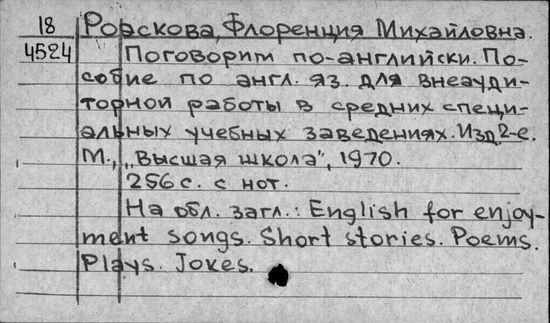 18 Рорскова, Флоренция Михайловна.
4524 Поговорим по-английски. По-
собие по англ. яз. для внеауди-
торной работы в средних специ-
альных учебных заведениях. Изд. 2-е.
М., „Высшая школа", 1970.
256 с. с нот.
На обл. загл.: English for enjoy-
ment songs. Short stories. Poems.
Plays. Jokes.